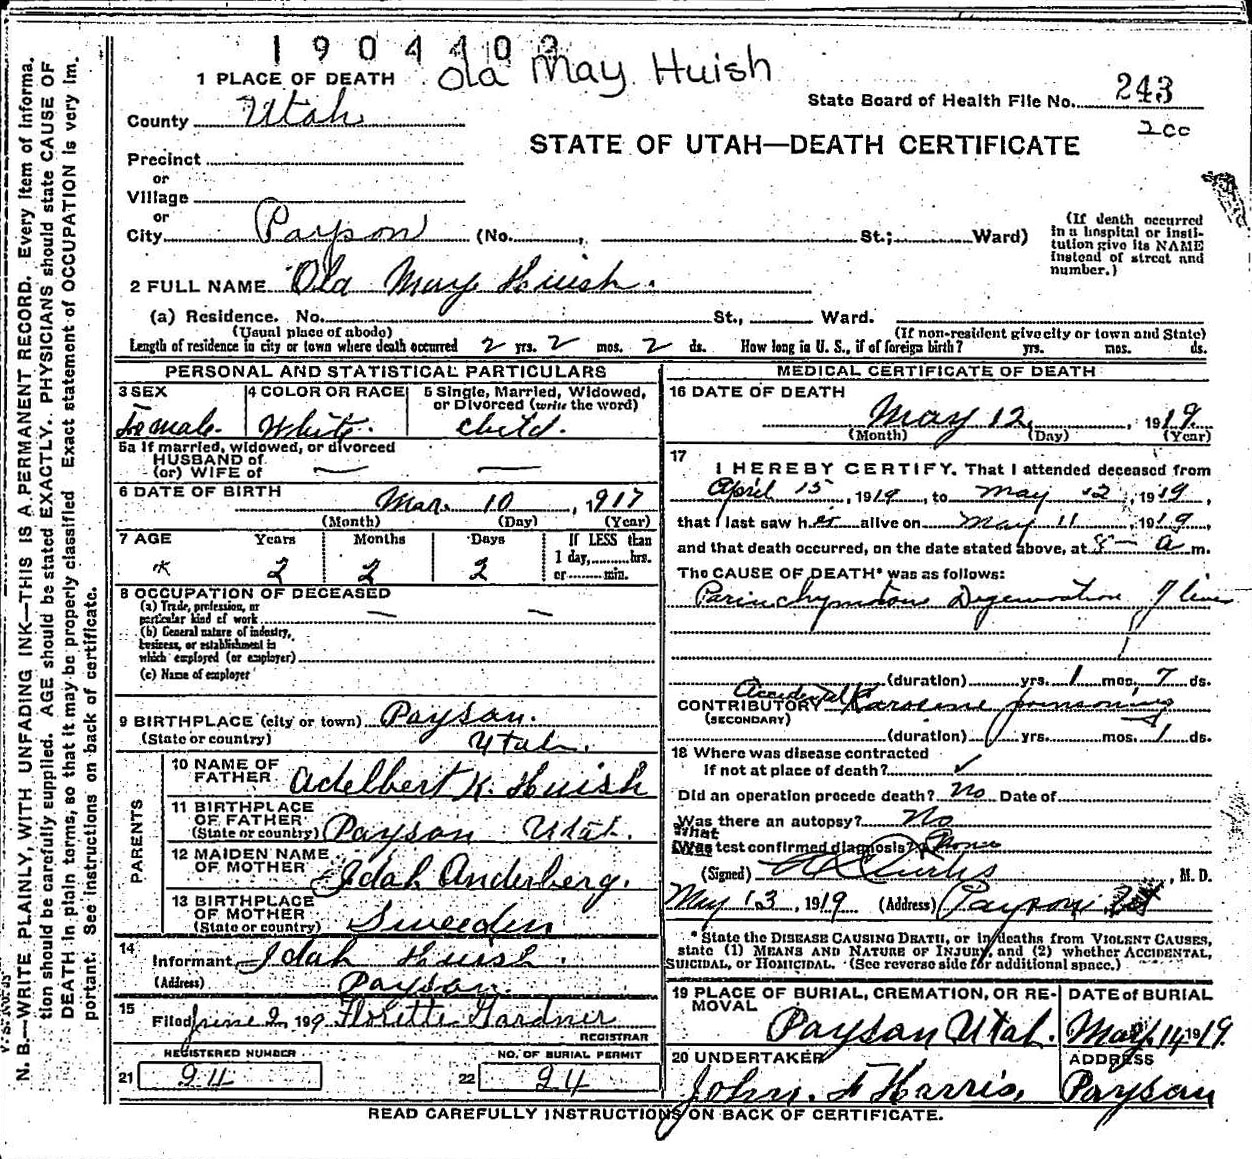 1904402
Ola May Huish
1 PLACE OF DEATH
State Board of Health File No. 243
2cc
County Utah
STATE OF UTAH—DEATH CERTIFICATE
Precinct
or
Village
or
City Payson (No. , St.; Ward)
(If death occurred in a hospital or institution give its NAME instead of street and number.)
2 FULL NAME Ola May Huish.
(a) Residence. No. St., Ward.
(Usual place of abode) (If non-resident give city or town and State)
Length of residence in city or town where death occurred 2 yrs. 2 mos. 2 ds. How long in U. S., if of foreign birth? yrs. mos. ds.
PERSONAL AND STATISTICAL PARTICULARS
3 SEX Female.
4 COLOR OR RACE White.
5 Single, Married, Widowed, or Divorced (write the word) Child.
5a If married, widowed, or divorced
HUSBAND of
(or) WIFE of — —
6 DATE OF BIRTH Mar. 10, 1917
(Month) (Day) (Year)
7 AGE Years Months Days If LESS than 1 day, hrs. or min.
2 2 2
8 OCCUPATION OF DECEASED
(a) Trade, profession, or particular kind of work — —
(b) General nature of industry, business, or establishment in which employed (or employer)
(c) Name of employer
9 BIRTHPLACE (city or town) Payson.
(State or country) Utah.
PARENTS
10 NAME OF FATHER Adelbert K. Huish
11 BIRTHPLACE OF FATHER (State or country) Payson Utah.
12 MAIDEN NAME OF MOTHER Idah Anderberg.
13 BIRTHPLACE OF MOTHER (State or country) Sweeden
14 Informant Idah Huish.
(Address) Payson.
15 Filed June 2, 1919 Florette Gardner
REGISTRAR
REGISTERED NUMBER NO. OF BURIAL PERMIT
21 24 22 24
MEDICAL CERTIFICATE OF DEATH
16 DATE OF DEATH
May 12, 1919
(Month) (Day) (Year)
17 I HEREBY CERTIFY, That I attended deceased from
April 15, 1919, to May 12, 1919,
that I last saw her alive on May 11, 1919,
and that death occurred, on the date stated above, at 8 — a m.
The CAUSE OF DEATH* was as follows:
Parinchymatous Degeneration of liver
(duration) yrs. 1 mos. 7 ds.
Accidental
CONTRIBUTORY Karosene poisoning
(SECONDARY)
(duration) yrs. mos. 1 ds.
18 Where was disease contracted
If not at place of death? ✓
Did an operation precede death? No Date of
Was there an autopsy? No
What test confirmed diagnosis?
(Signed) Curtis, M. D.
May 13, 1919 (Address) Payson Ut
* State the DISEASE CAUSING DEATH, or in deaths from VIOLENT CAUSES, state (1) MEANS AND NATURE OF INJURY, and (2) whether ACCIDENTAL, SUICIDAL, or HOMICIDAL. (See reverse side for additional space.)
19 PLACE OF BURIAL, CREMATION, OR REMOVAL Payson Utah.
DATE of BURIAL May 14, 1919.
20 UNDERTAKER John F Harris,
ADDRESS Payson
READ CAREFULLY INSTRUCTIONS ON BACK OF CERTIFICATE.
N. B.—WRITE PLAINLY, WITH UNFADING INK—THIS IS A PERMANENT RECORD. Every item of informa-
tion should be carefully supplied. AGE should be stated EXACTLY. PHYSICIANS should state CAUSE OF
DEATH in plain terms, so that it may be properly classified. Exact statement of OCCUPATION is very im-
portant. See instructions on back of certificate.